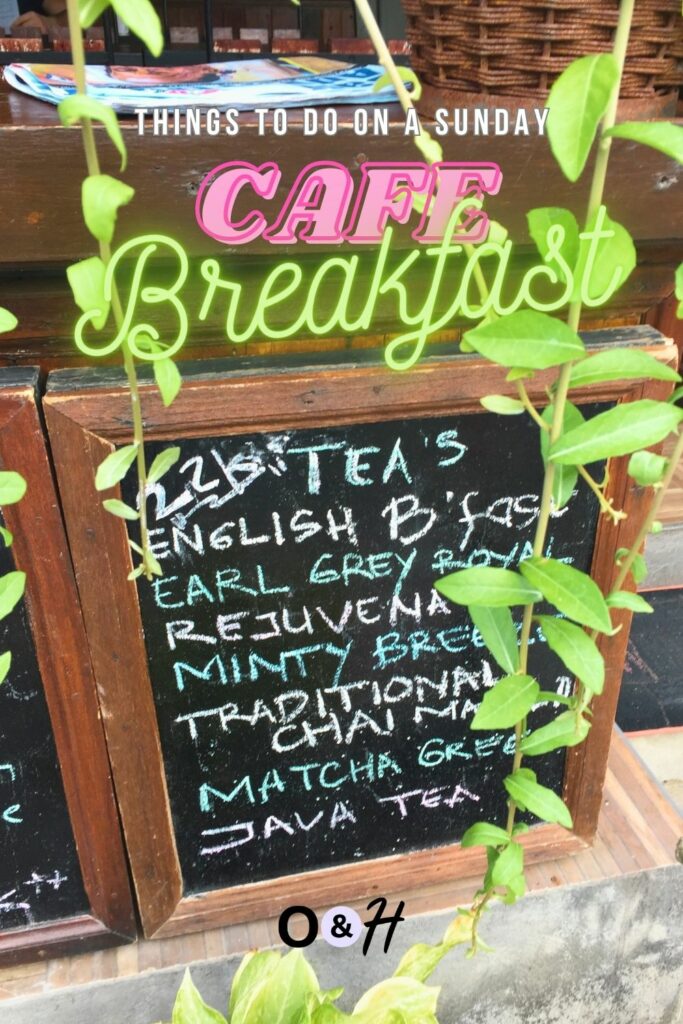 THINGS TO DO ON A SUNDAY
CAFE
Breakfast
TEA'S
ENGLISH B'fast
EARL GREY ROYAL
REJUVENA
MINTY BREEZE
TRADITIONAL
CHAI
MATCHA GREE
JAVA TEA
O&H